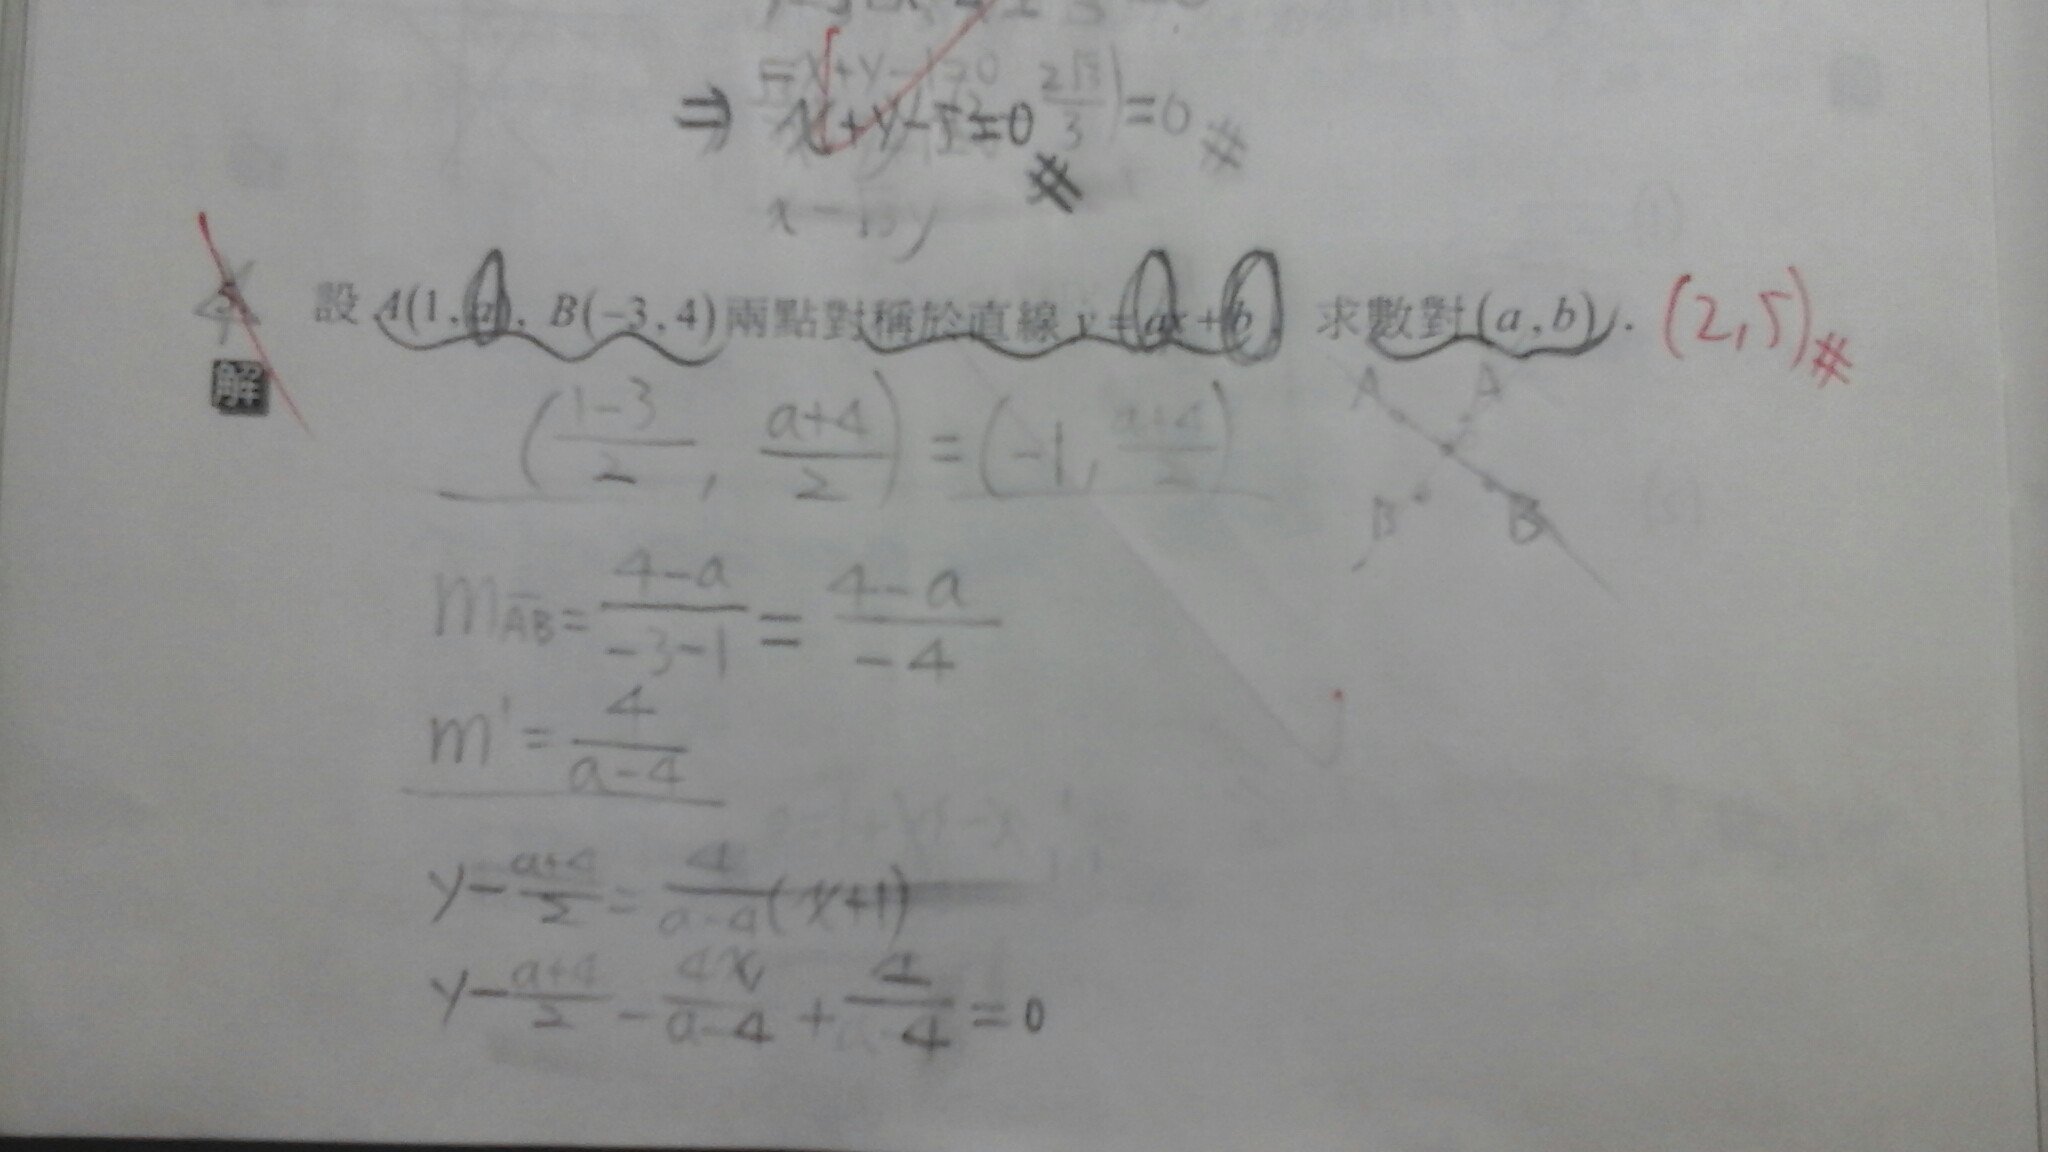 =x+y-1=0
⇒ x+y-5=0 2√3/3)=0 #
#
x-√3y
設 A(1,a), B(-3,4)兩點對稱於直線 y=ax+b, 求數對(a,b). (2,5)#
解
(1-3/2, a+4/2)=(-1, a+4/2)
A A
B B
m AB=4-a/-3-1=4-a/-4
m'=4/a-4
y-a+4/2=4/a-4(x+1)
y-a+4/2-4x/a-4+4/a-4=0